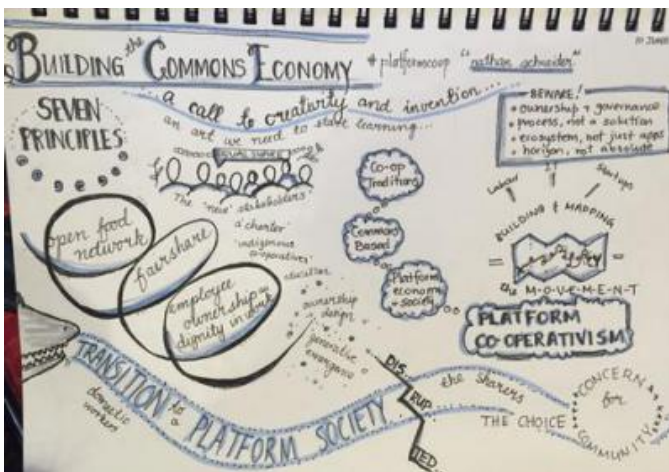 BUILDING the COMMONS ECONOMY
#platformcoop "nathan schneider"
a call to creativity and invention...
an art we need to start learning...
SEVEN
PRINCIPLES
EQUAL SHARE
The "new" stakeholders
a charter
indigenous
co-operatives
education
ownership
design
generative
emergence
open food
network
fairshare
employee
ownership =
dignity in work
Co-op
Traditions
Commons
Based
Platform
economy
+ society
BEWARE!
ownership + governance
process, not a solution
ecosystem, not just apps
horizon, not absolute
Labour
Startups
BUILDING + MAPPING
the M-O-V-E-M-E-N-T
PLATFORM
CO-OPERATIVISM
TRANSITION to a PLATFORM SOCIETY
domestic
workers
DIS
RUP
TED
the sharers
THE CHOICE
CONCERN
for
COMMUNITY